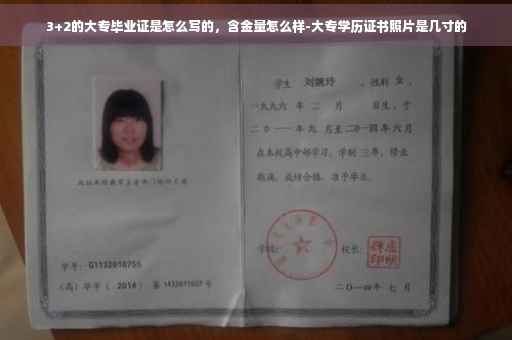 3+2的大专毕业证是怎么写的，含金量怎么样-大专学历证书照片是几寸的
学生 刘婉玲 ，性别 女 ，
一九九六 年 二 月 日生，于
二〇一一 年 九 月至 二〇一四 年 六 月
在本校高中部学习，学制 三 年，修业
期满，成绩合格，准予毕业。
学校： 校长：
学号： G1132010755
（高）毕字（ 2014 ）第 1432011027 号
二〇一四年 七 月